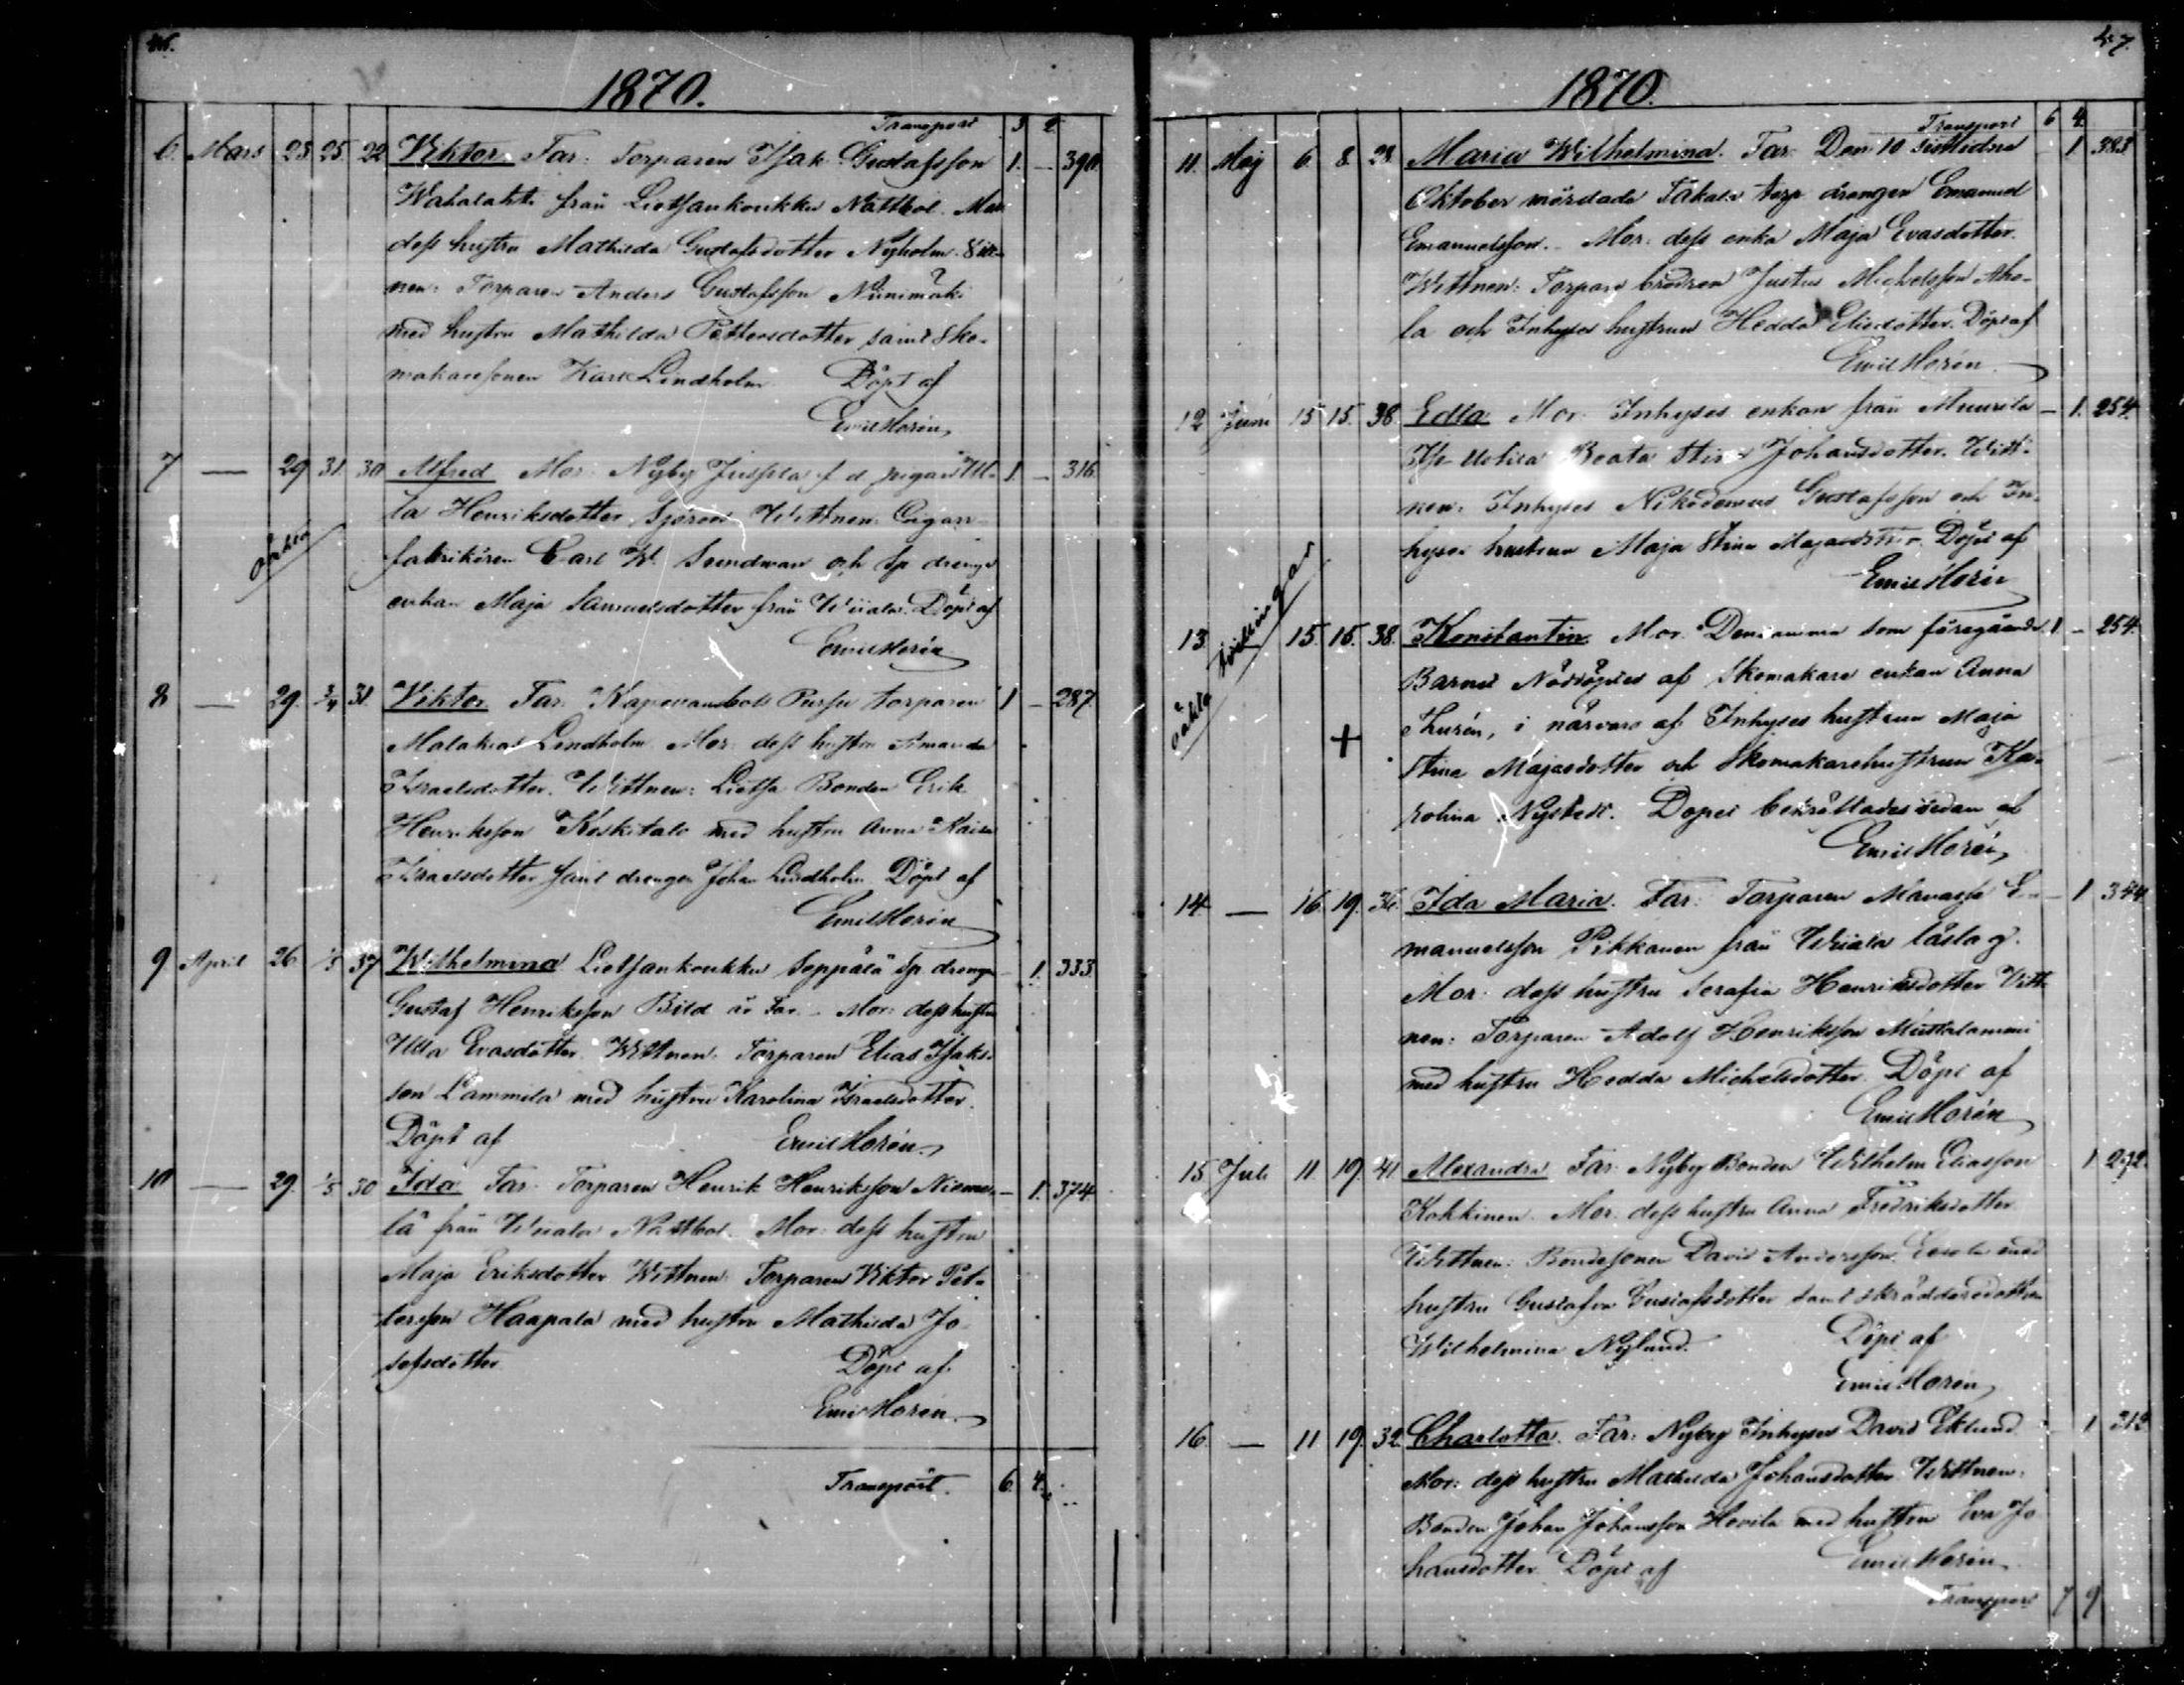 46.
1870.
Transport 3 2
6. Mars 23. 25. 22 Viktor. Far: Torparen Isak Gustafsson 1. - 390.
Wahalahti från Lietsankoukku Nättbol. Mor
dess hustru Mathilda Gustafsdotter Nyholm. Vitt-
nen: Torparen Anders Gustafsson Niinimäki
med hustru Mathilda Pettersdotter samt Sko-
makaresonen Karl Lindholm Döpt af
Emil Horén
7 — 29 31. 30 Alfred Mor: Nyby Jussila f d pigan Ul- 1 - 316.
oäkta
la Henriksdotter Sjöroos Wittnen: Cigarr-
fabrikören Carl W. Sundman och Sp drengs
enkan Maja Samuelsdotter från Wiiala. Döpt af
Emil Horén
8 — 29. 3/4 31. Viktor Far: Torparen 1 - 287.
Malakias Lindholm Mor: dess hustru Amanda
Israelsdotter. Wittnen: Bonden Erik
Henriksson Koskitalo med hustru Anna Kaisa
Israelsdotter samt drengen Johan Lindholm Döpt af
Emil Horén
9 April 26. 1/5 37 Wilhelmina Lietsankoukku Seppälä Sp drengen - 1. 333.
Gustaf Henriksson Bild är Far. - Mor: dess hustru
Ulla Evasdotter. Wittnen: Torparen Elias Isaks-
son Lammila med hustru Karolina Israelsdotter.
Döpt af Emil Horén
10 — 29. 1/5 30 Ida Far: Torparen Henrik Henriksson Nieme- - 1. 374.
lä från Wiiala Nättbol. Mor: dess hustru
Maja Eriksdotter Wittnen: Torparen Viktor Pet-
tersson Haapala med hustru Mathilda Jo-
sefsdotter Döpt af
Emil Horén
Transport. 6 4
47.
1870.
Transport 6 4.
11. Maj 6. 8. 28. Maria Wilhelmina. Far: Den 10 sistlidne 1. 383
Oktober mördade torp drengen Emanuel
Emanuelsson. - Mor: dess enka Maja Evasdotter.
Wittnen: Torpare brodren Justus Michelsson Aho-
la och Inhyses hustrun Hedda Eliedotter. Döpt af
Emil Horén
12 Juni 15 15. 38. Edla Mor: Inhyses enkan från - 1. 254.
Beata Stina Johansdotter. Witt-
nen: Inhyses Nikodemus Gustafsson och In-
hyses hustrun Maja Stina Majasdotter. Döpt af
Emil Horén
oäkta tvillingar
13. 15. 15. 38. Konstantin. Mor: Densamma som föregående 1 - 254.
Barnet Nöddöptes af Skomakare enkan Anna
Thurén, i närvaro af Inhyses hustrun Maja
Stina Majasdotter och Skomakarehustrun Ka-
rolina Nystedt. Dopet bekräftades sedan af
Emil Horén
14. — 16. 19. 36. Ida Maria. Far: Torparen Manasse E- - 1 344
manuelsson Pikkanen från Wiiala
Mor: dess hustru Serafia Henriksdotter Vitt-
nen: Torparen Adolf Henriksson Mustalammi
med hustru Hedda Michelsdotter. Döpt af
Emil Horén
15 Juli 11. 19. 41. Alexandra. Far: Nyby Bonden Wilhelm Eliasson 1 292.
Kokkinen. Mor: dess hustru Anna Fredriksdotter
Wittnen: Bondesonen David Andersson med
hustru Gustafva Gustafsdotter samt Skräddaredottern
Wilhelmina Nylund. Döpt af
Emil Horén
16. — 11 19. 32. Charlotta. Far: Nyby Inhyses David Eklund 1 312
Mor: dess hustru Mathilda Johansdotter Wittnen:
Bonden Johan Johansson Hovila med hustru Eva Jo-
hansdotter Döpt af Emil Horén
Transport 7 9